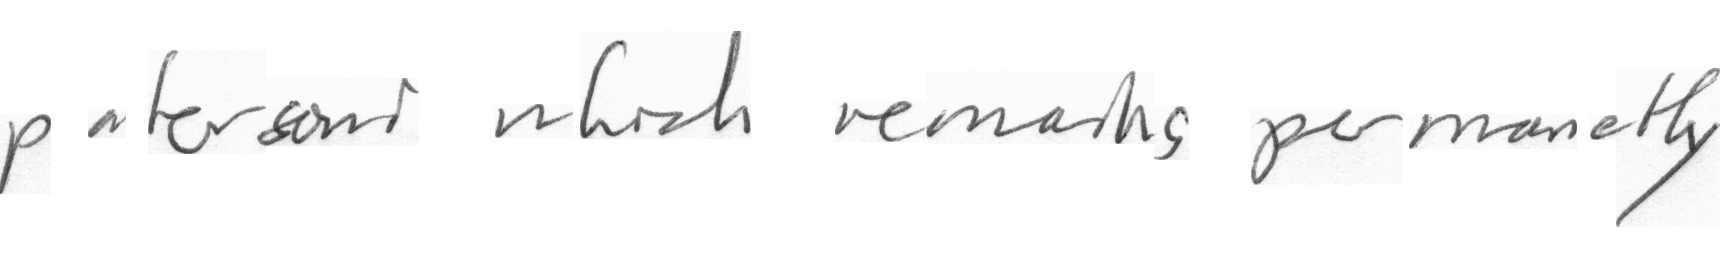 patersoni which remains permanetly